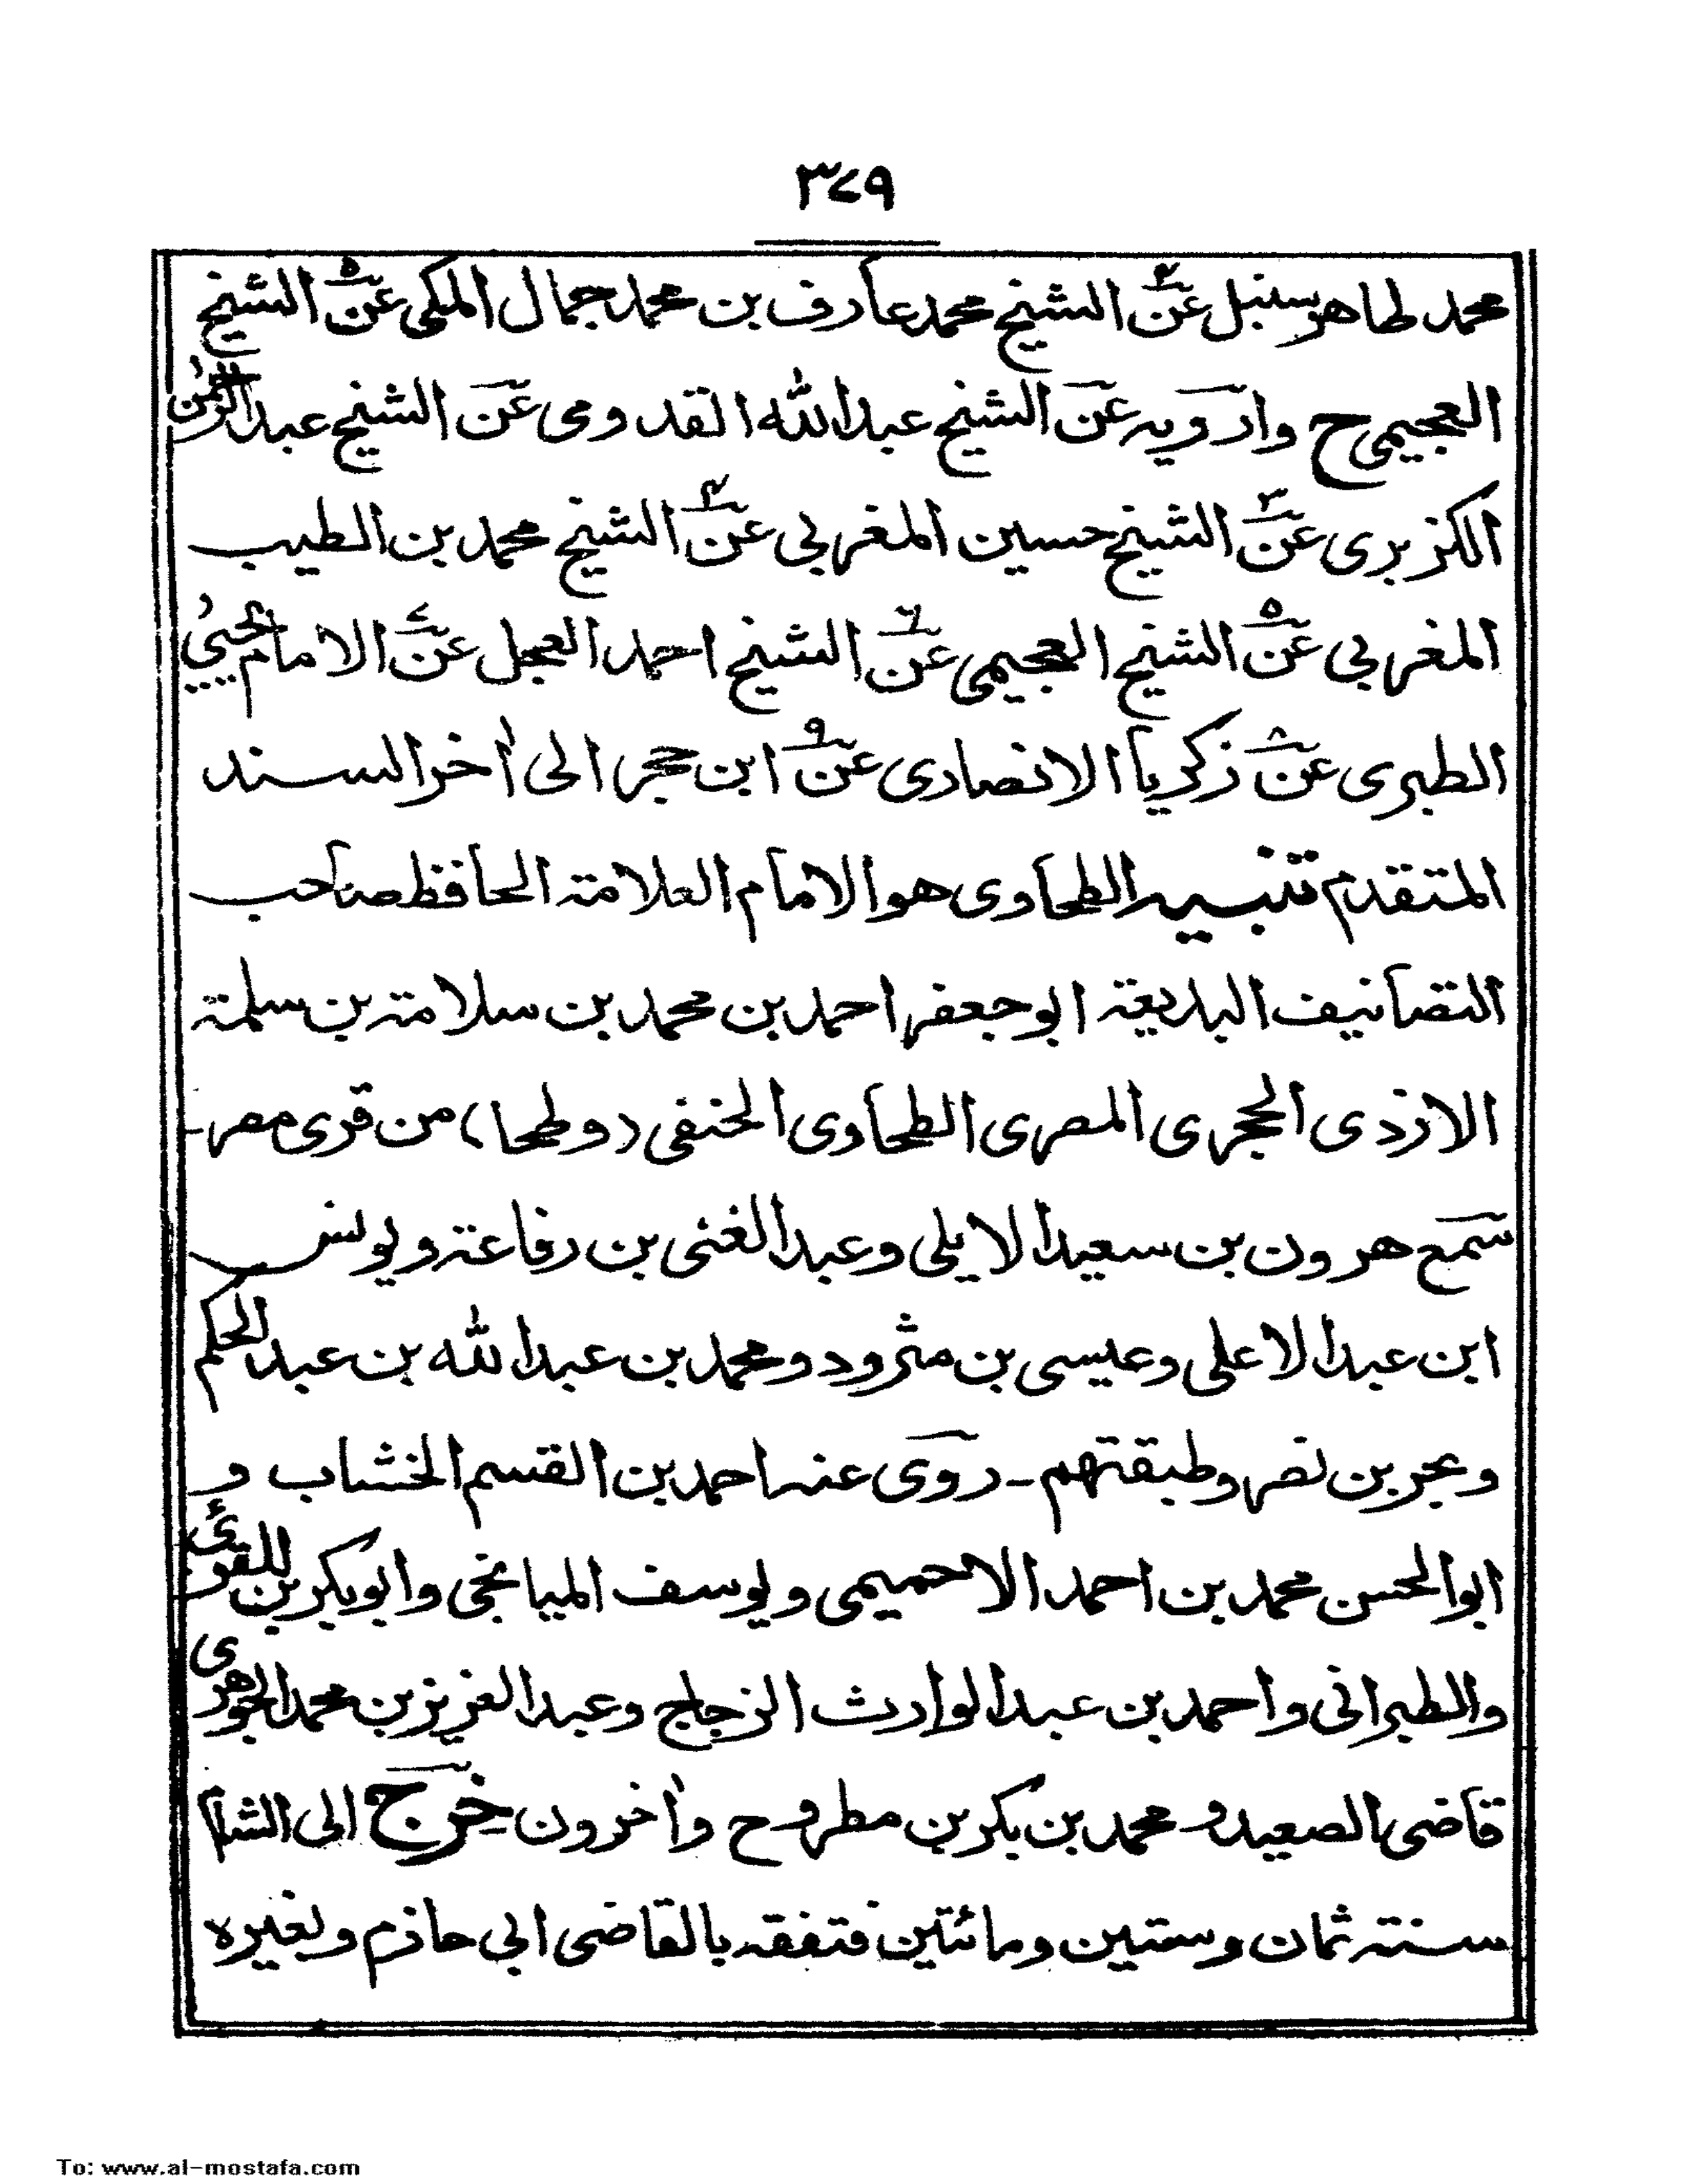 ٣٧٩
محمد طاهر سنبل عن٤ الشيخ محمد عارف بن محمد جمال المكى عن٥ الشيخ
العجيمى ح وارويه عن الشيخ عبدالله القدومى عن الشيخ عبدالرحمٰن
الكزبرى عن٣ الشيخ حسين المغربى عن٤ الشيخ محمد بن الطيب
المغربى عن٥ الشيخ العجيمى عن٦ الشيخ احمد العجل عن٧ الامام يحيىٰ
الطبرى عن٨ زكريا الانصارى عن٩ ابن حجر الى اٰخر السند
المتقدم تنبيه الطحاوى هو الامام العلامة الحافظ صاحب
التصانيف البديعة ابو جعفر احمد بن محمد بن سلامة بن سلمة
الازدى الحجرى المصرى الطحاوى الحنفى (وطحا) من قرى مصر-
سمع هرون بن سعيد الايلى وعبد الغنى بن رفاعة ويونس
ابن عبد الاعلى وعيسى بن مثرود ومحمد بن عبدالله بن عبد الحكم
وبحر بن نصر وطبقتهم - روى عنه احمد بن القسم الخشاب و
ابو الحسن محمد بن احمد الاحميمى ويوسف الميانجى وابوبكر بن المقرئ
والطبرانى واحمد بن عبد الوارث الزجاج وعبد العزيز بن محمد الجوهرى
قاضى الصعيد ومحمد بن بكر بن مطروح واٰخرون خرج الى الشام
سنة ثمان وستين ومائتين فتفقه بالقاضى ابى حازم وبغيره
To: www.al-mostafa.com